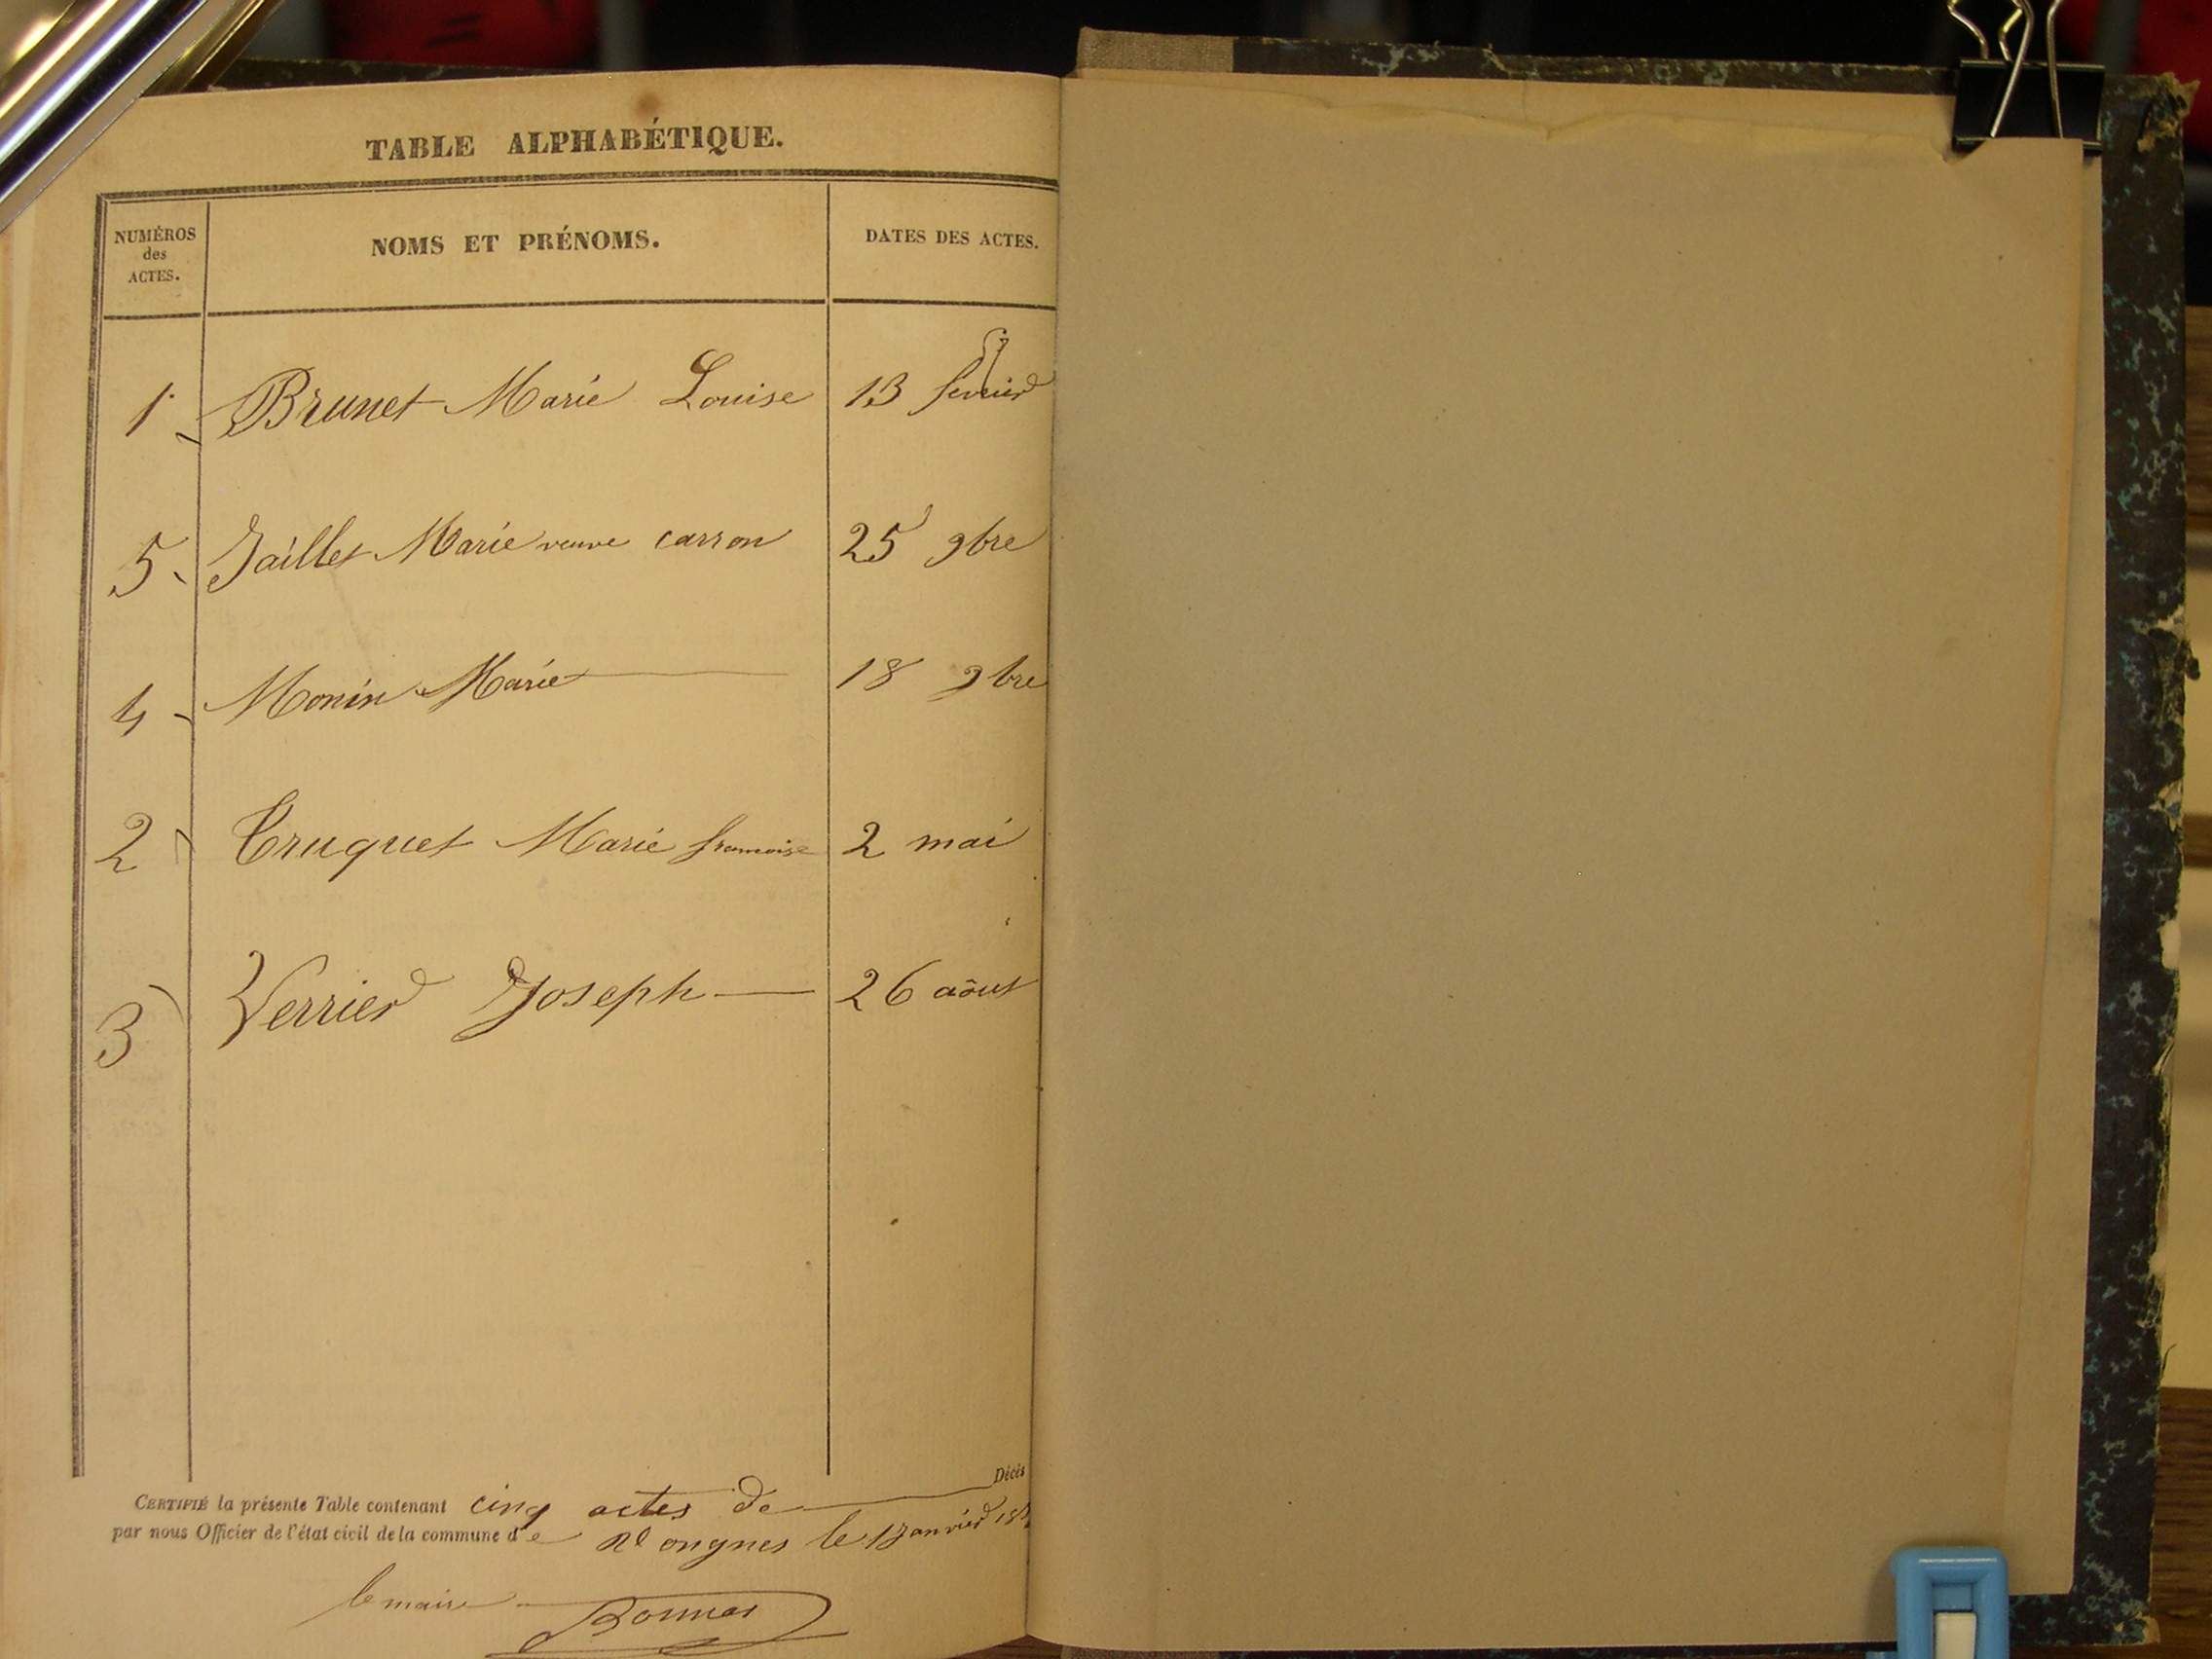 TABLE ALPHABÉTIQUE.
NUMÉROS des ACTES.
NOMS ET PRÉNOMS.
DATES DES ACTES.
1 Brunet Marie Louise 13 fevrier
5 Jaillet Marie veuve carron 25 9bre
4 Monin Marie 18 9bre
2 Truquet Marie francoise 2 mai
3 Verrier Joseph 26 août
Décès
CERTIFIÉ la présente Table contenant cinq actes de
par nous Officier de l'état civil de la commune de le 1 janvier
le maire